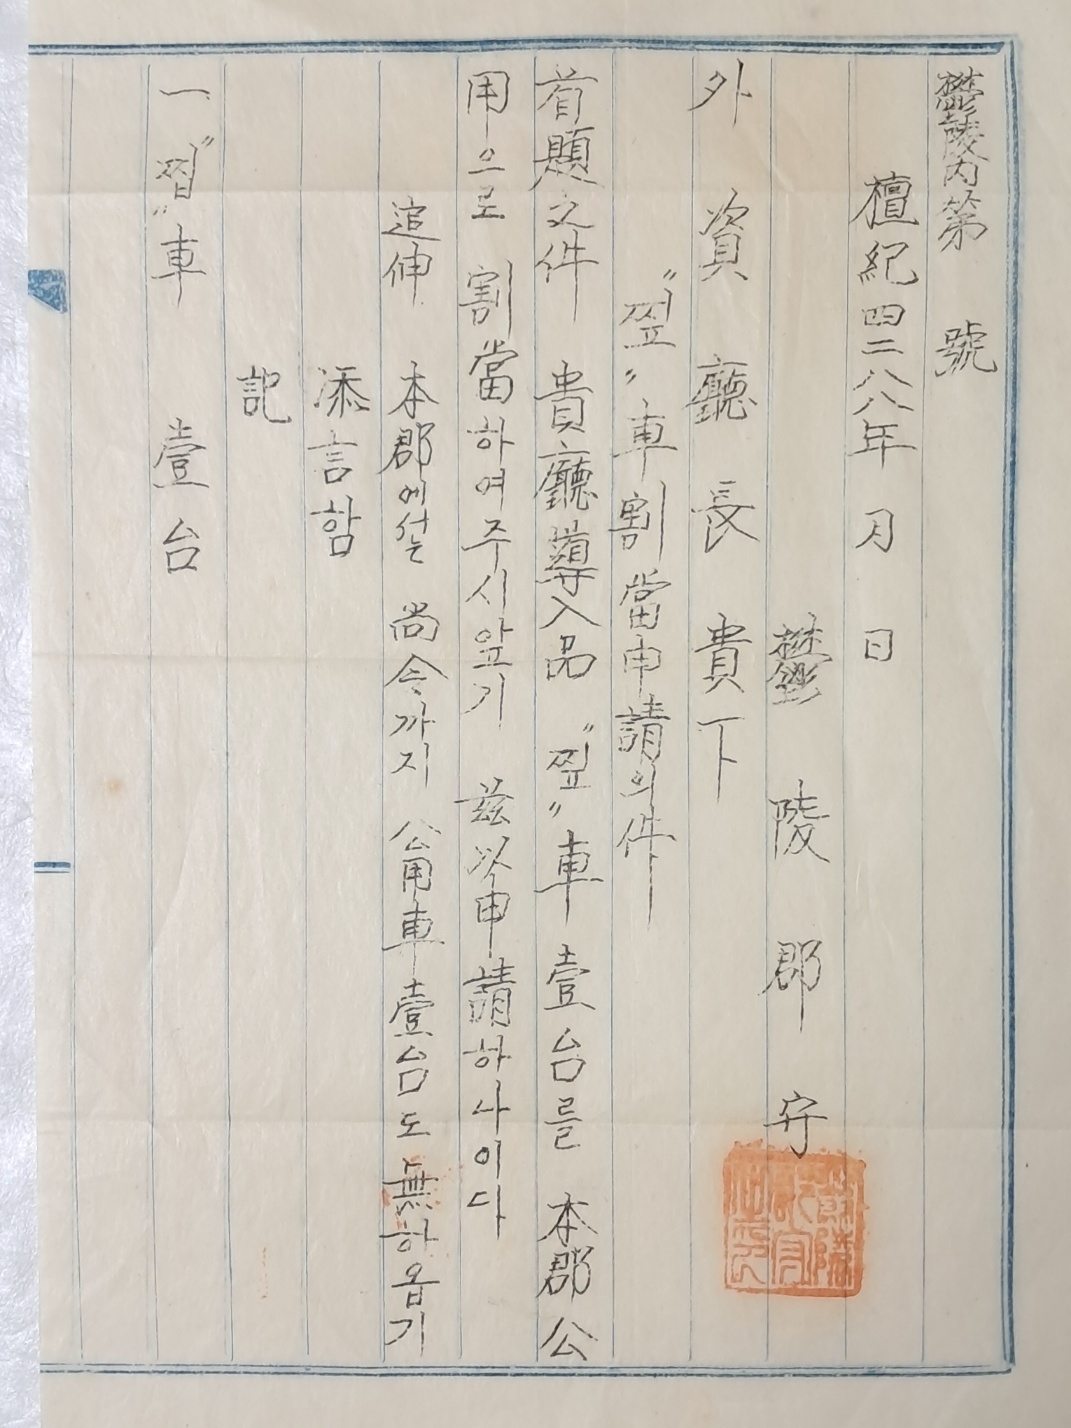 鬱陵內第 號
檀紀四二八八年 月 日
鬱陵郡守
外資廳長 貴下
〃찦〃車割當申請의件
首題之件 貴廳導入品 〃찦〃車壹台를 本郡公
用으로 割當하여주시앞기 玆以申請하나이다
追伸 本郡에섣는 尙今까지 公用車壹台도無하옵기
添言함
記
一 〃찝〃車 壹台